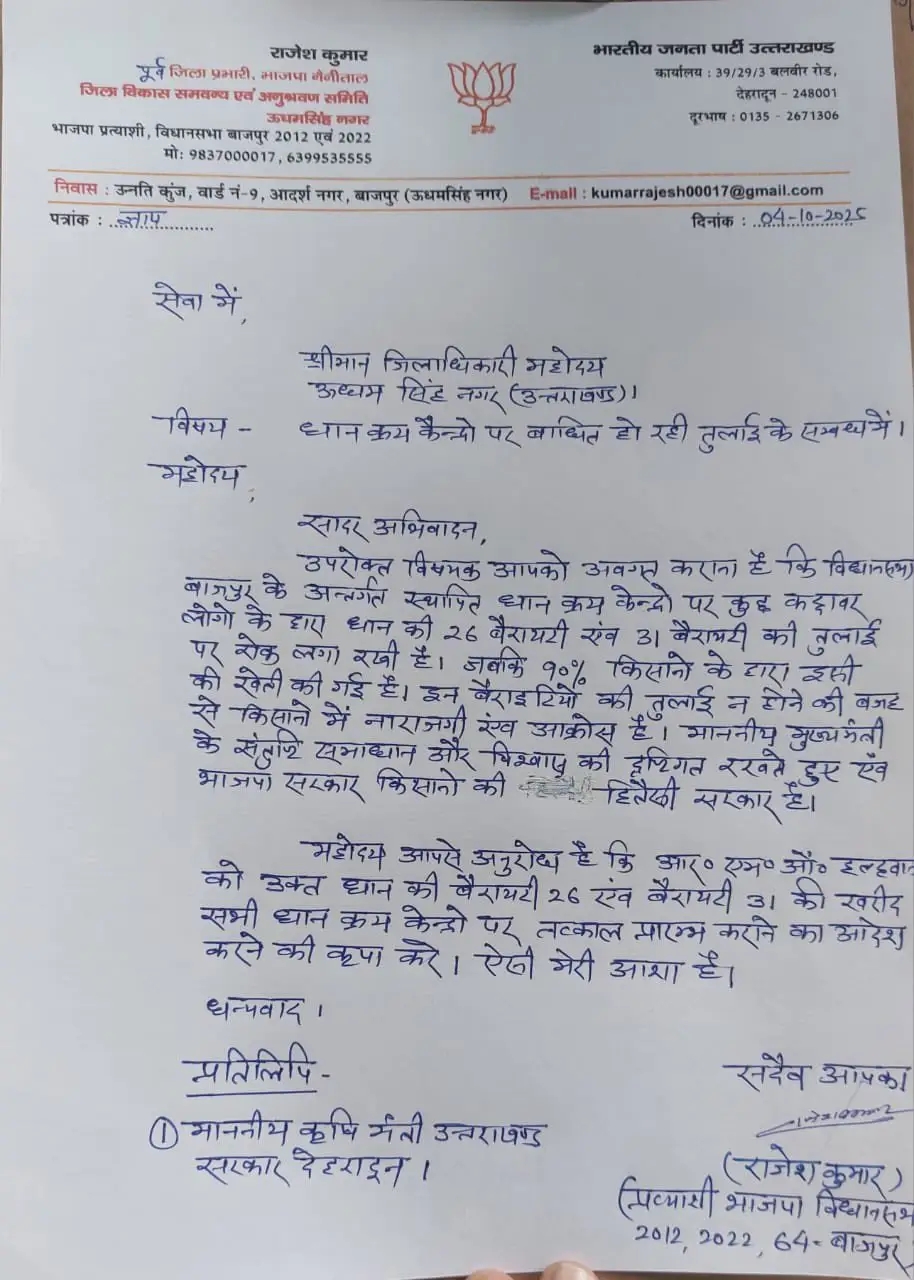 राजेश कुमार
पूर्व जिला प्रभारी, भाजपा नैनीताल
जिला विकास समवन्य एवं अनुश्रवण समिति
ऊधमसिंह नगर
भाजपा प्रत्याशी, विधानसभा बाजपुर 2012 एवं 2022
मो: 9837000017, 6399535555
भारतीय जनता पार्टी उत्तराखण्ड
कार्यालय : 39/29/3 बलवीर रोड,
देहरादून - 248001
दूरभाष : 0135 - 2671306
निवास : उन्नति कुंज, वार्ड नं-9, आदर्श नगर, बाजपुर (ऊधमसिंह नगर) E-mail : kumarrajesh00017@gmail.com
पत्रांक :
दिनांक : 04-10-2025
सेवा में,
श्रीमान जिलाधिकारी महोदय
ऊधम सिंह नगर (उत्तराखण्ड)।
विषय - धान क्रय केन्द्रो पर बाधित हो रही तुलाई के सम्बध में।
महोदय,
सादर अभिवादन,
उपरोक्त विषयक आपको अवगत कराना है कि विधानसभा
बाजपुर के अन्तर्गत स्थापित धान क्रय केन्द्रो पर कुछ कद्दावर
लोगो के द्वारा धान की 26 वैरायटी एंव 31 वैरायटी की तुलाई
पर रोक लगा रखी है। जबकि 90% किसानो के द्वारा इसी
की खेती की गई है। इन वैराइटियो की तुलाई न होने की वजह
से किसानो में नाराजगी एंव आक्रोस है। माननीय मुख्यमंत्री
के संतुष्टि समाधान और विश्वास की दृष्टिगत रखते हुए एंव
भाजपा सरकार किसानो की हितैषी सरकार है।
महोदय आपसे अनुरोध है कि आर० एम० ओ० हल्द्वानी
को उक्त धान की वैरायटी 26 एंव वैरायटी 31 की खरीद
सभी धान क्रय केन्द्रो पर तत्काल प्रारम्भ कराने का आदेश
करने की कृपा करे। ऐसी मेरी आशा है।
धन्यवाद।
प्रतिलिपि -
① माननीय कृषि मंत्री उत्तराखण्ड
सरकार देहरादून।
सदैव आपका
(राजेश कुमार)
(प्रत्याशी भाजपा विधानसभा
2012, 2022, 64- बाजपुर)